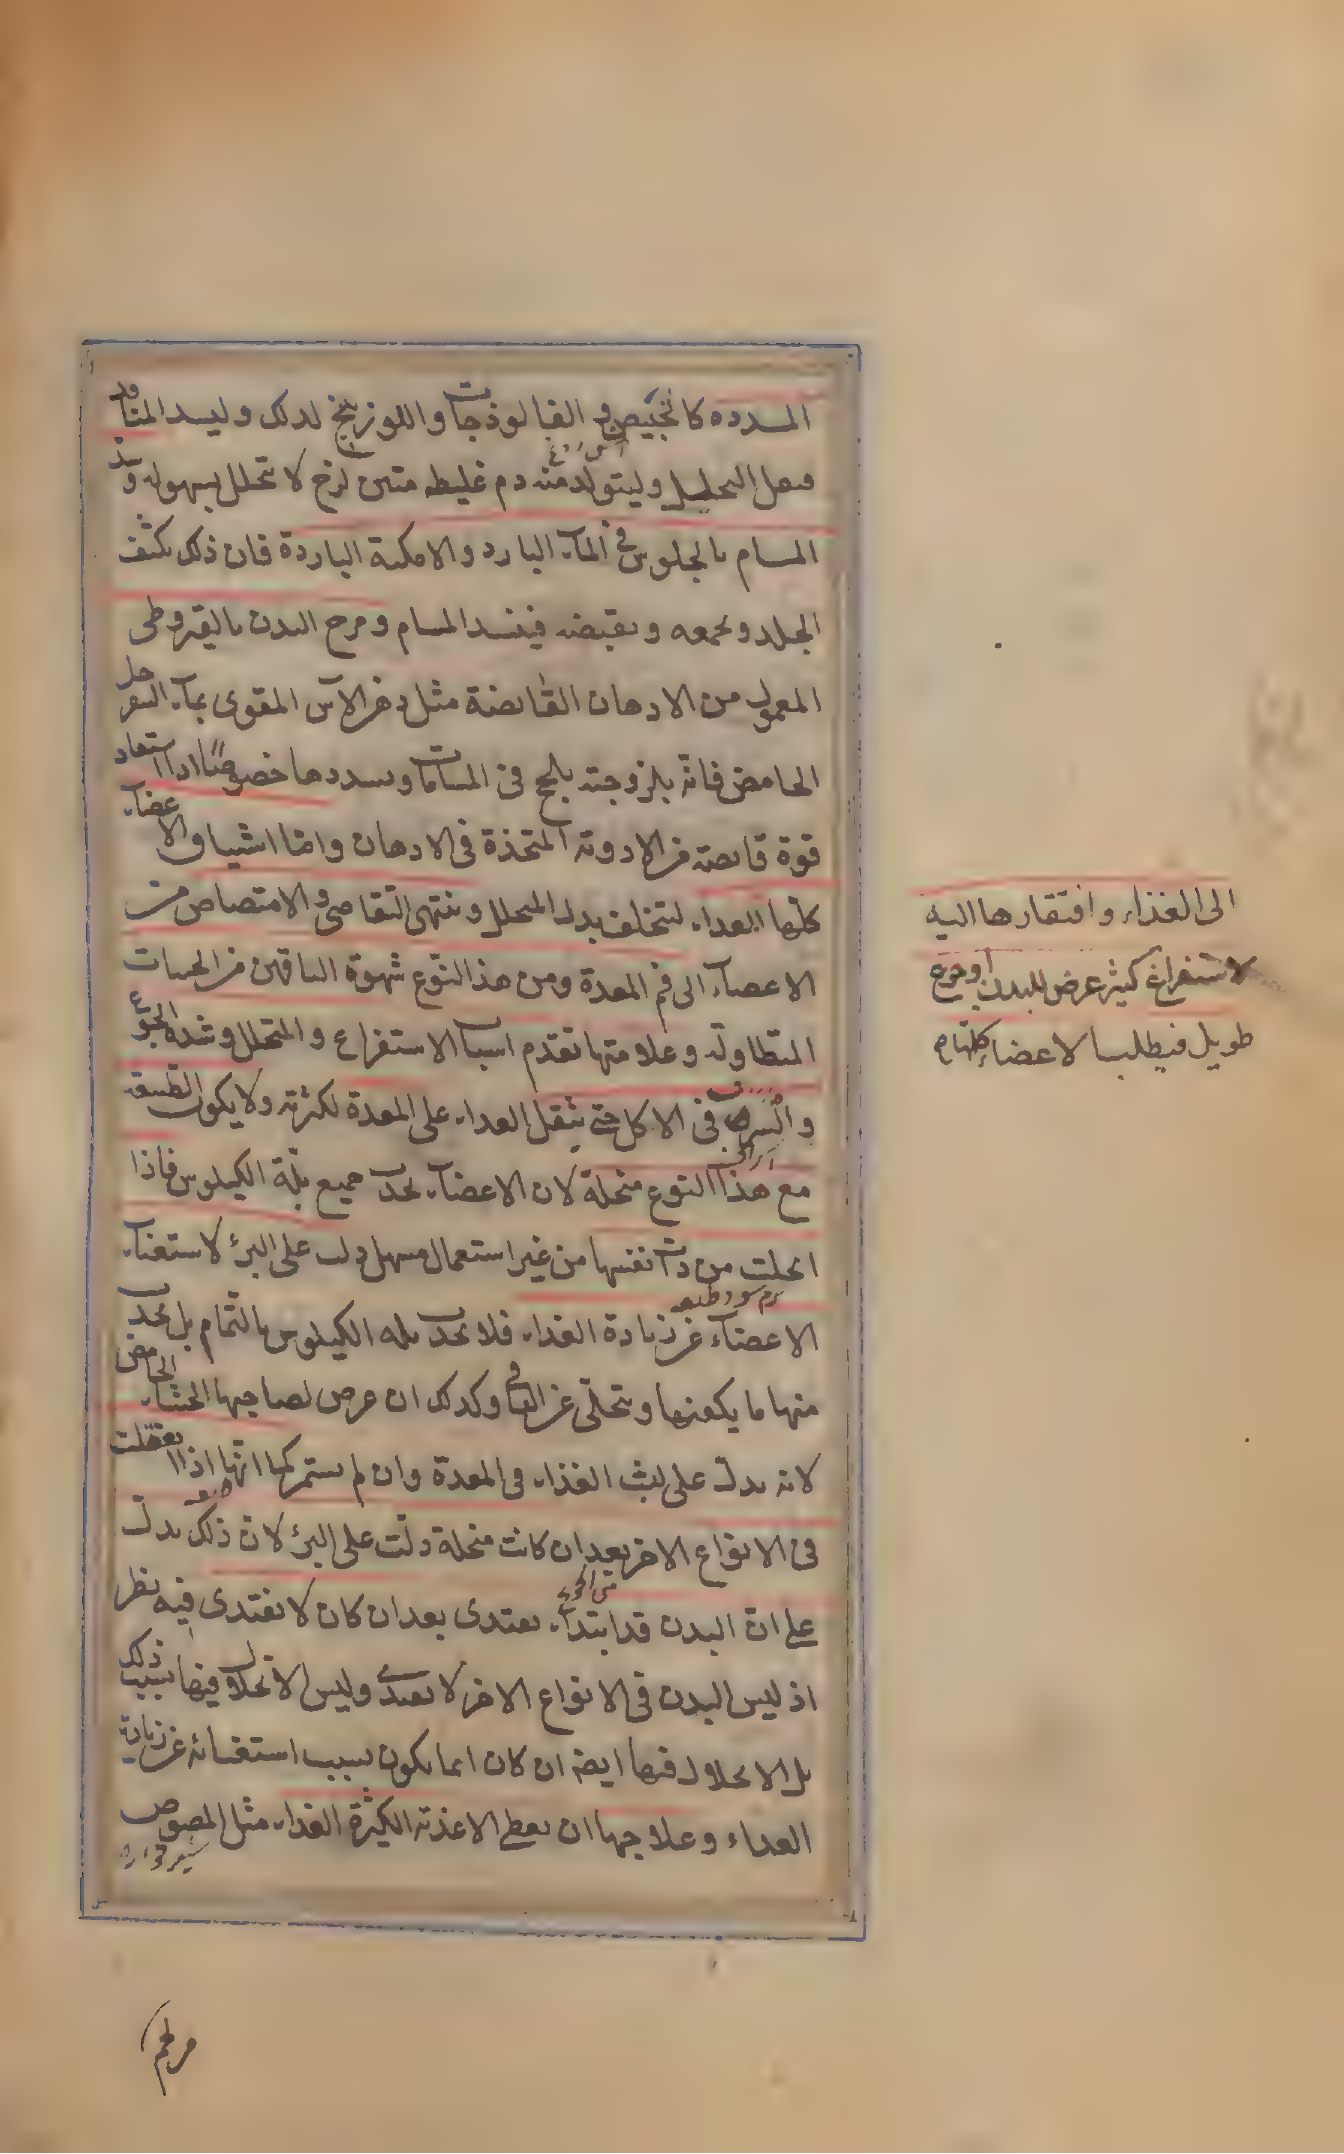 المسدده كالخبيص و الفالوذجات واللوزينج لذلك وليسد المنافذ
فيقل التحليل وليتولد منه دم غليظ متين لزج لا تتحلل بسهولة وسد
المسام بالجلوس فى المآء البارد والامكنة الباردة فان ذلك يكثف
الجلد ويجمعه ويقبضه فينسد المسام ومرخ البدن بالقيروطى
المعمول من الادهان القابضة مثل دهن الآس المقوى بمآء السفرجل
الحامض فانه بلزوجته يلحج فى المسامات ويسددها خصوصًا اذا استفاد
قوة قابضة من الادوية المتخذة فى الادهان وامّا اشتياق الاعضآء
كلّها الغداء لتخلف بدل المتحلل وينتهى التقاضى والامتصاص من
الاعضآء الى فم المعدة ومن هذا النّوع شهوة الناقهين من الحميات
المتطاولة وعلامتها تقدم اسباب الاستفراغ والمتحلل وشدة الجوع
والشره فى الاكل حتى يثقل الغداء على المعدة لكثرته ولا يكون الطبيعة
مع هذا النوع منحلة لان الاعضآء تجذب جميع بلّة الكيلوس فاذا
انحلت من ذات نفسها من غير استعمال مسهل دلت على البرء لاستغنآء
الاعضآء عن زيادة الغداء فلا تجذب بله الكيلوس بالتّمام بل تجذب
منها ما يكفيها وتتخلّى عن الباقى وكذلك ان عرض لصاحبها الجشآء الحامض
لانه يدلّ على لبث الغذاء فى المعدة وان لم يستمر كما انّها اذا اعتقلت
فى الانواع الاخر بعد ان كانت منحلة دلّت على البرء لان ذلك يدلّ
على انّ البدن قد ابتدآء يغتدى بعد ان كان لا يغتدى فيه نظر
اذ ليس البدن فى الانواع الاخر لا يغتدى وليس الانحلال فيها بسبب ذلك
بل الانحلال فيها ايضا ان كان انما يكون بسبب استغنائه عن زيادة
الغداء وعلاجها ان يعطى الاغذية الكثيرة الغداء مثل المصوص
الى الغذاء وافتقارها اليه
لاستفراغ كثير عرض للبدن أو جوع
طويل فيطلب الاعضاء كلّها